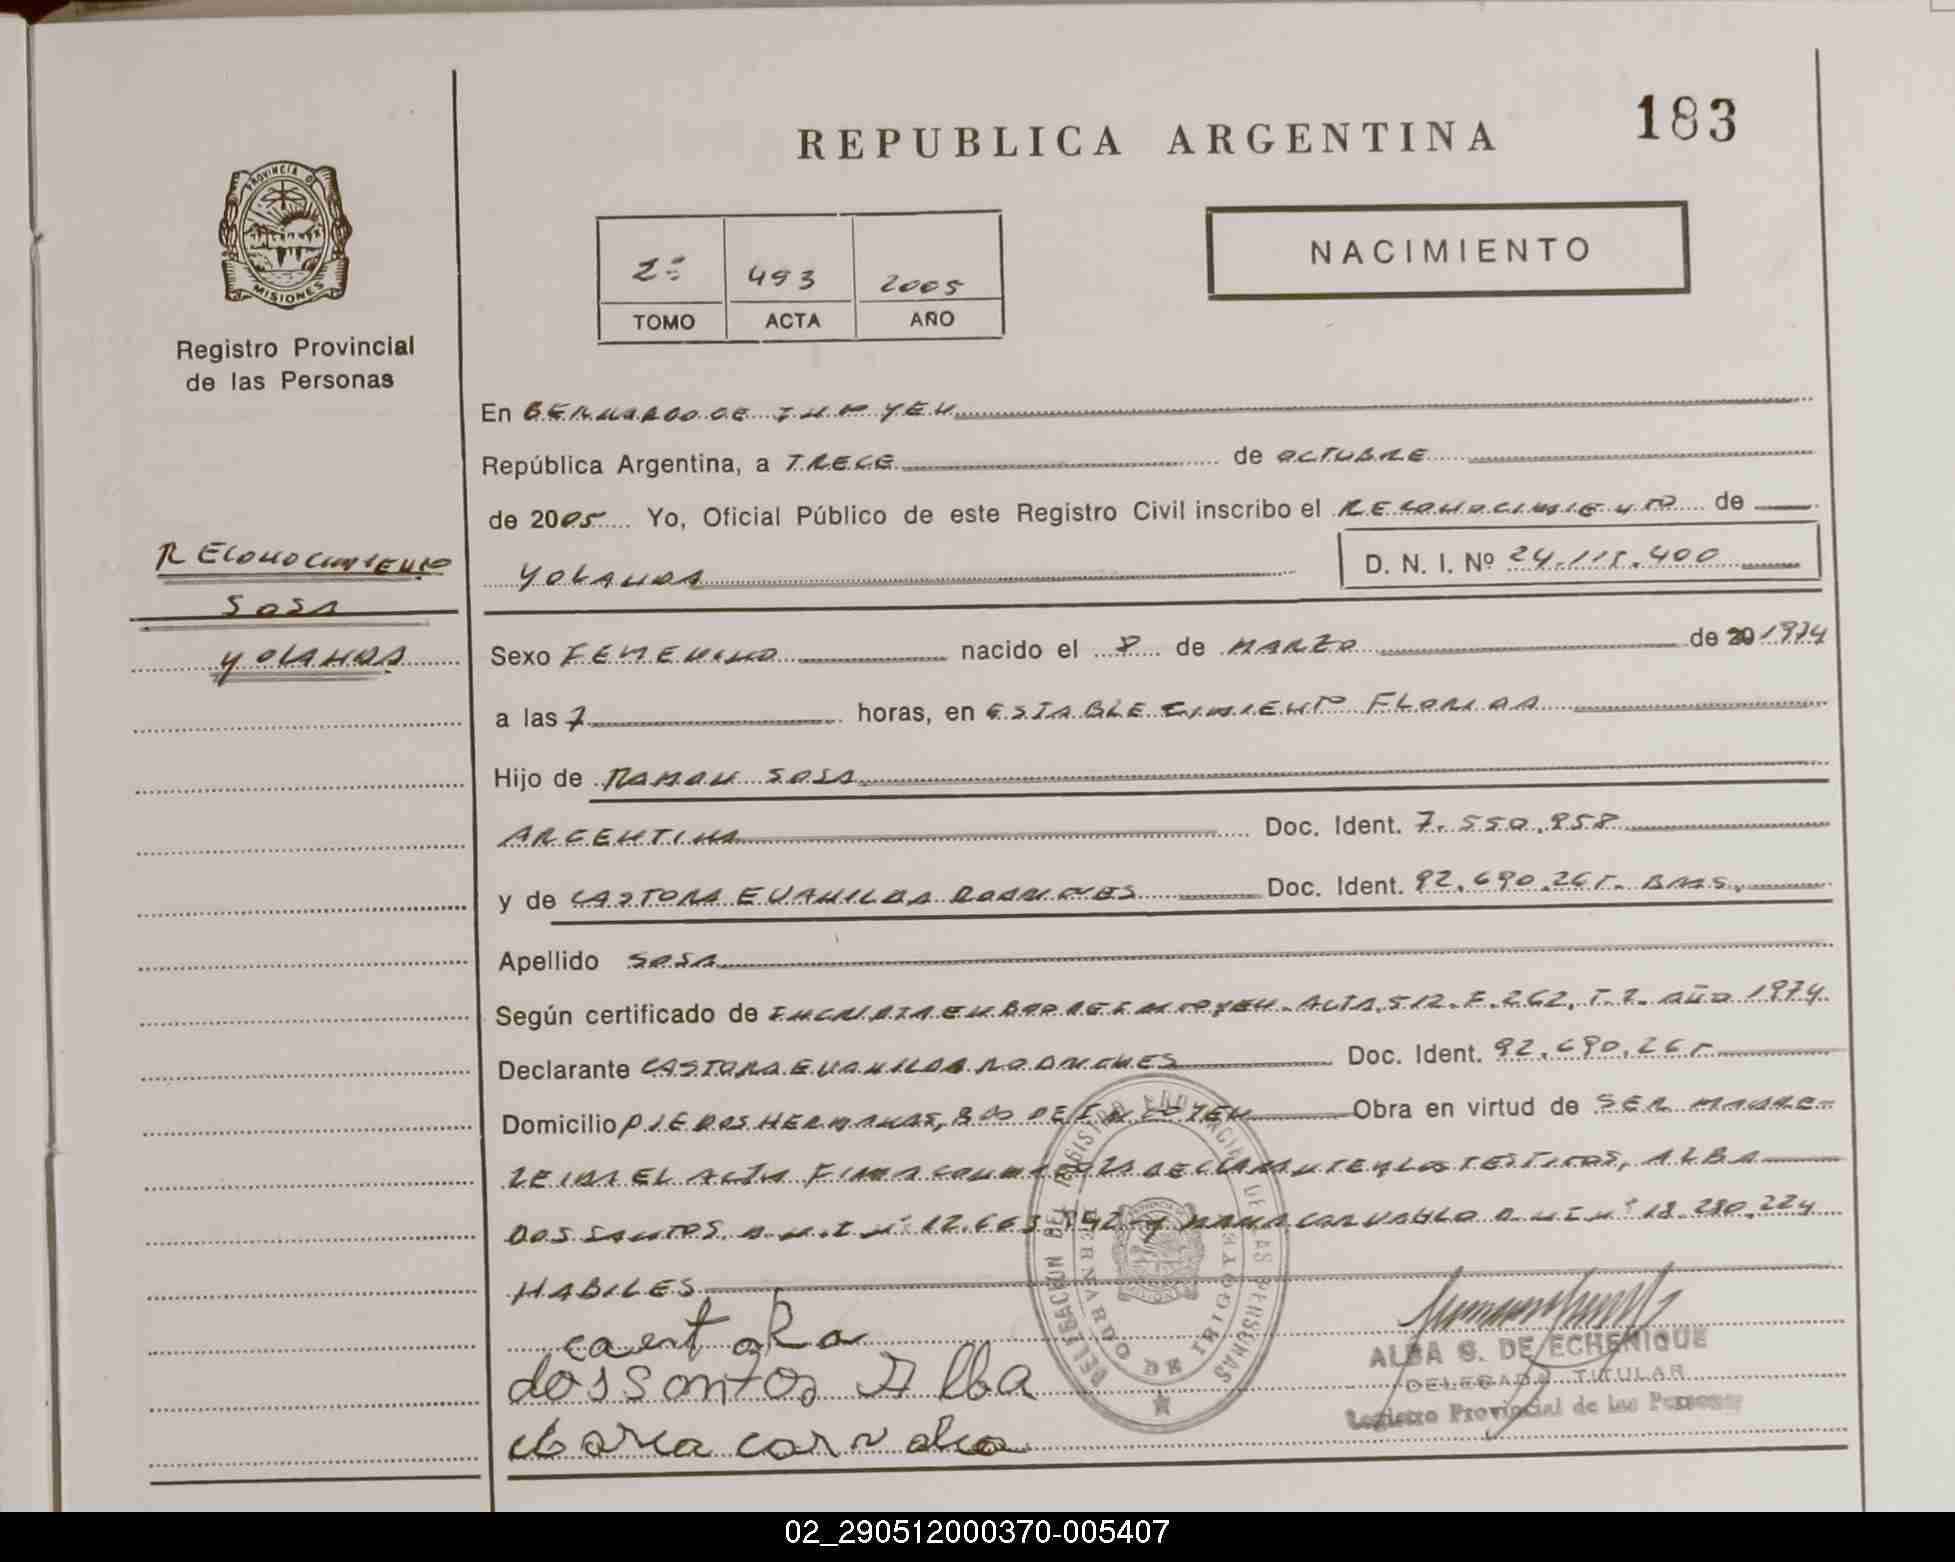 183
REPUBLICA ARGENTINA
PROVINCIA DE
MISIONES
Registro Provincial
de las Personas
2º 493 2005
TOMO ACTA AÑO
NACIMIENTO
En BERNARDO DE IRIGOYEN
República Argentina, a TRECE de OCTUBRE
de 2005 Yo, Oficial Público de este Registro Civil inscribo el RECONOCIMIENTO de
YOLANDA D. N. I. Nº 24.115.400
RECONOCIMIENTO
SOSA
YOLANDA
Sexo FEMENINO nacido el 8 de MARZO de 20 1974
a las 7 horas, en ESTABLECIMIENTO FLORIDA
Hijo de RAMON SOSA
ARGENTINA Doc. Ident. 7.550.958
y de CASTORA EVANILDA RODRIGUES Doc. Ident. 92.690.265. BRAS.
Apellido SOSA
Según certificado de INSCRIPTA EN BDO DE IRIGOYEN. ACTA. 512. F. 262. T. 2. AÑO 1974
Declarante CASTORA EVANILDA RODRIGUES Doc. Ident. 92.690.265
Domicilio PJE DOS HERMANAS, BDO DE IRIGOYEN Obra en virtud de SER MADRE-
LEIDA EL ACTA FIRMA CONMIGO LA DECLARANTE Y LOS TESTIGOS, ALBA
DOS SANTOS D.N.I Nº 12.663. Y MARIA CARVALHO D.N.I Nº 18.280.224
HABILES
castoRa
dos santos Alba
Maria carvalho
DELEGACION DEL REGISTRO PROVINCIAL DE LAS PERSONAS
BERNARDO DE IRIGOYEN
MISIONES
ALBA S. DE ECHENIQUE
DELEGADA TITULAR
Registro Provincial de las Personas
02_290512000370-005407